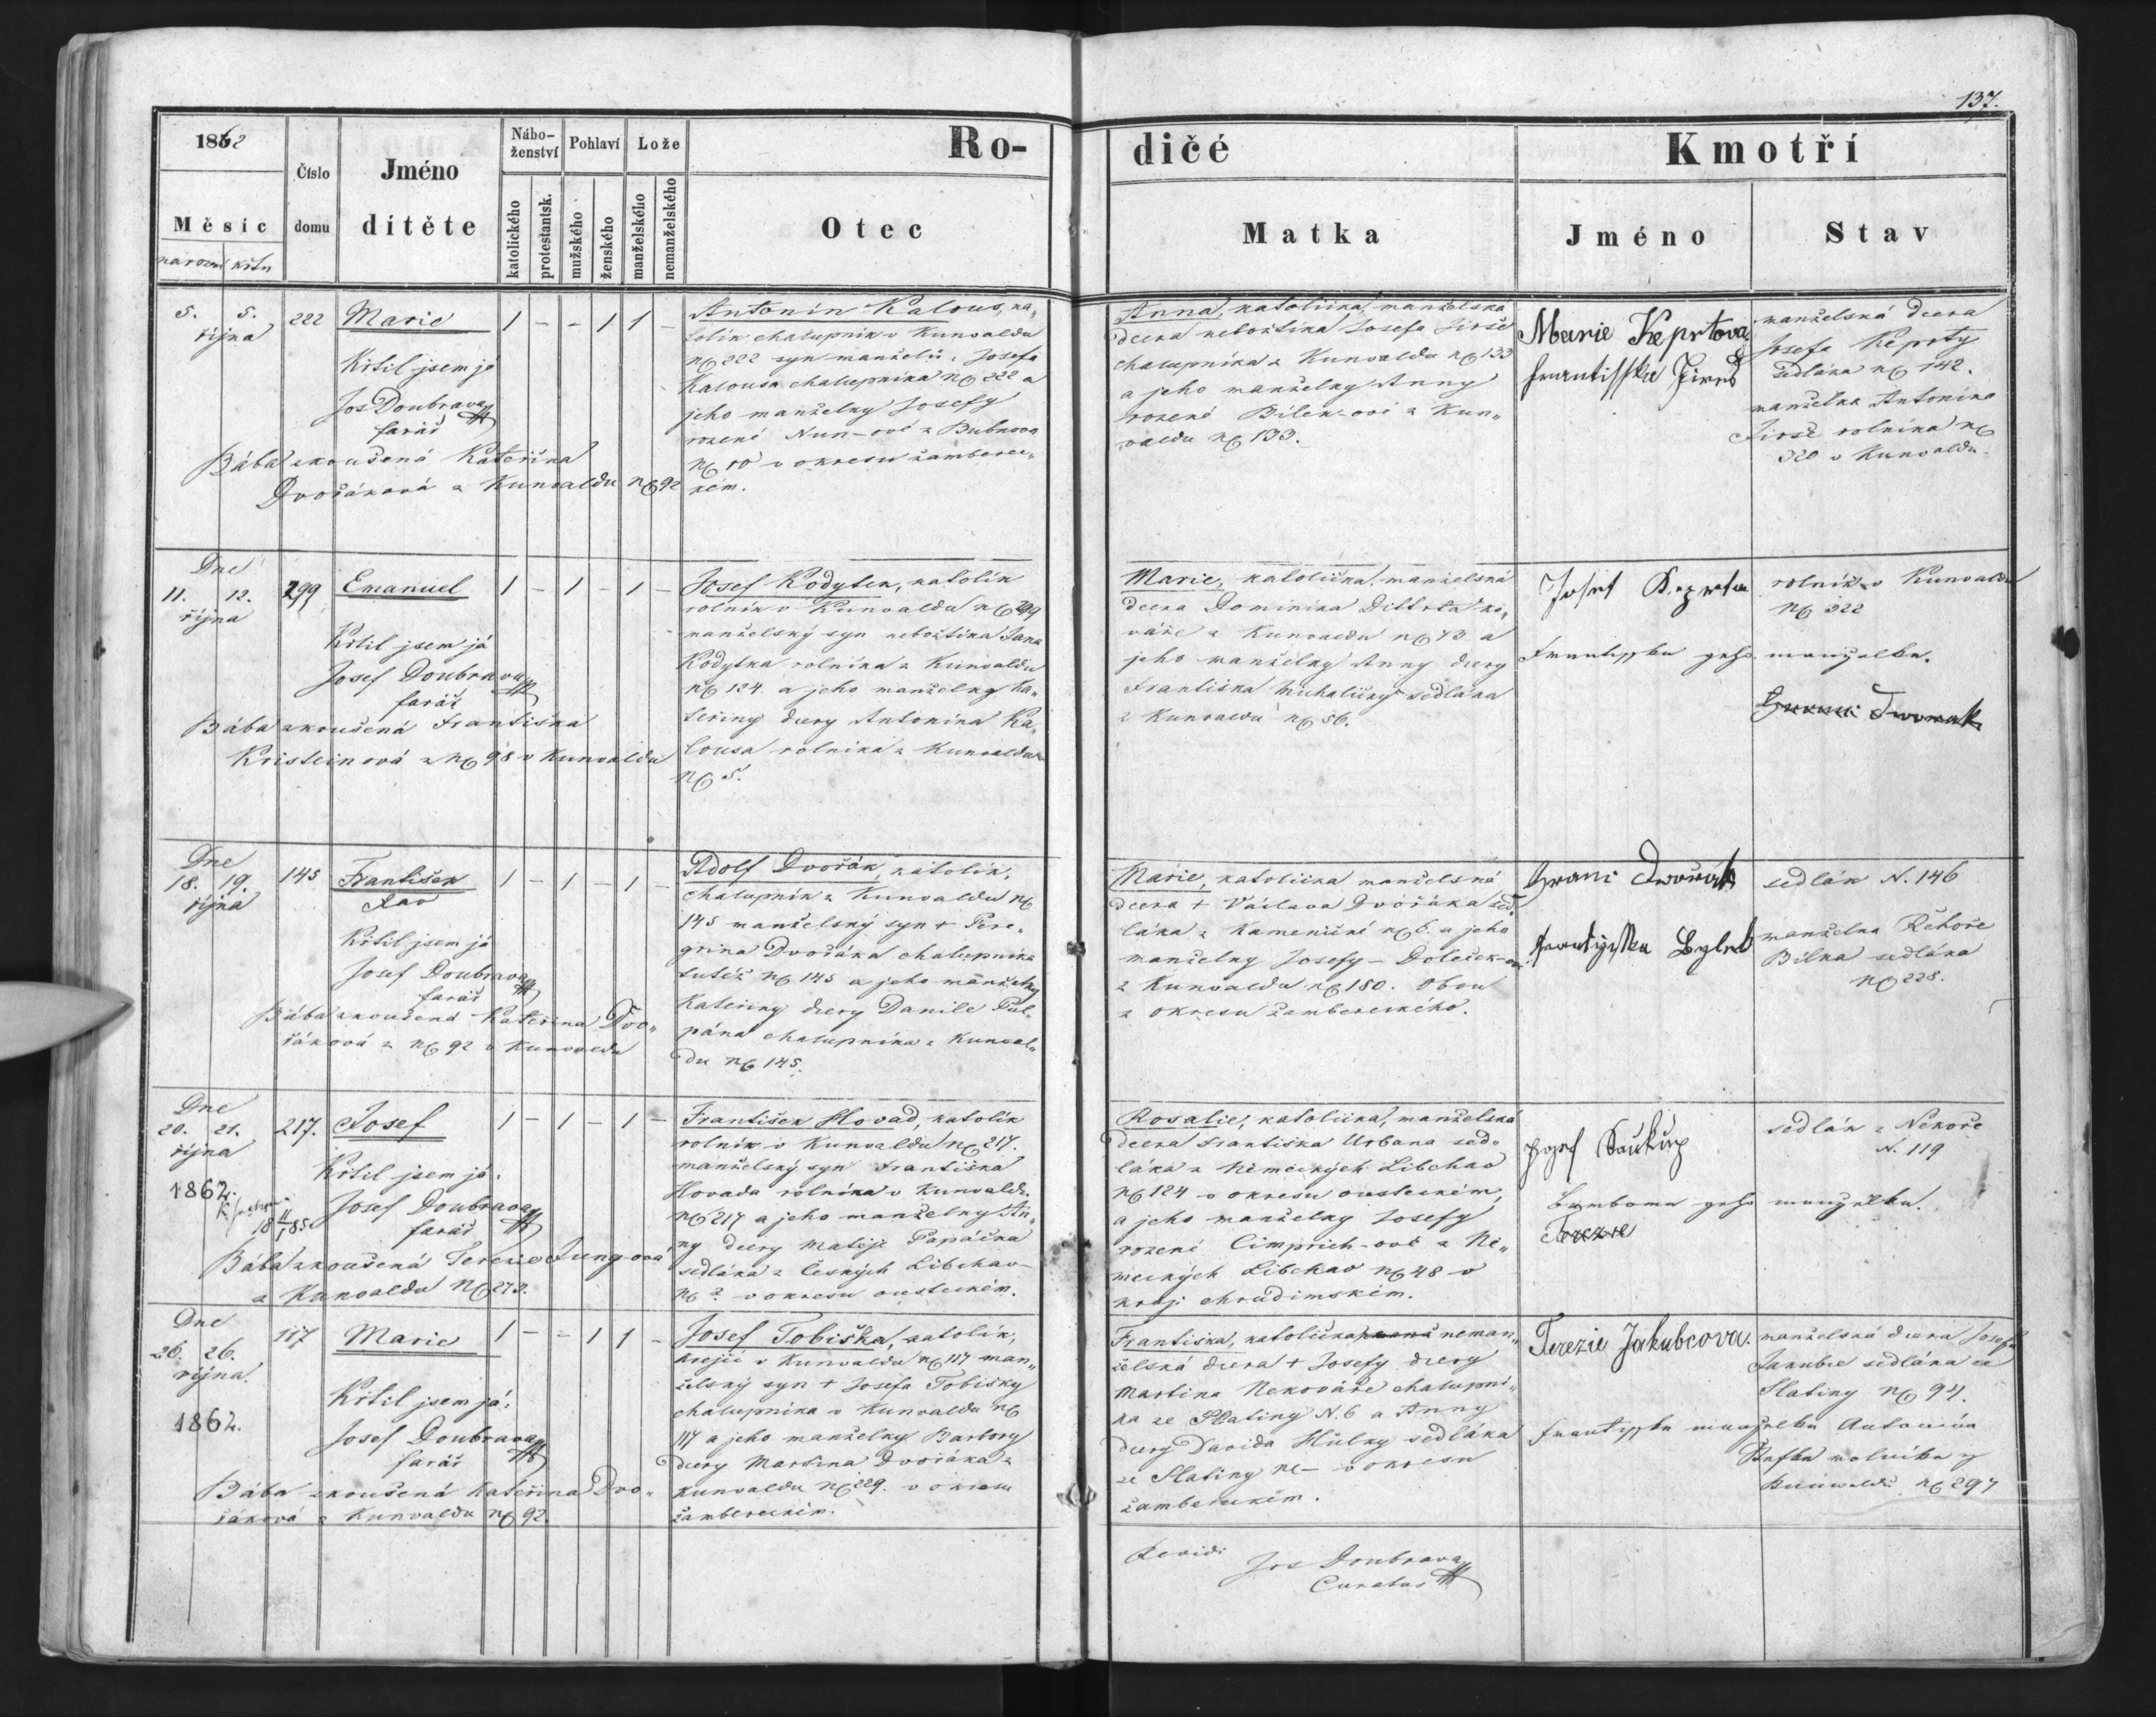 137.
1862
Měsíc
narození křtu
Číslo domu
Jméno dítěte
Náboženství
katolického
protestantsk.
Pohlaví
mužského
ženského
Lože
manželského
nemanželského
Ro-
dičé
Otec
Matka
Kmotří
Jméno
Stav
5. 5.
října
222
Marie
1 - - 1 1 -
Křtil jsem já
Jos Doubrava
farář
Bába zkoušená Kateřina
Dvořáková z Kunvaldu No 92
Antonín Kalous, ka„
tolík chalupník v Kunvaldu
No 222 syn manželů: Josefa
Kalousa chalupníka No 222 a
jeho manželky Josefy
rozené Nun-ové z Bubnova
No 10 v okresu žamberec„
kém.
Anna, katolička, manželská
dcera nebožtíka Josefa Jirše
chalupníka z Kunvaldu No 133
a jeho manželky Anny
rozené Bílek-ové z Kun„
valdu No 133.
Marie Keprtova
Frantisska Jires
manželská dcera
Josefa Keprty
sedláka No 142.
manželka Antonína
Jirše rolníka No
320 v Kunvaldu.
Dne
11. 12.
října
299
Emanuel
1 - 1 - 1 -
Křtil jsem já
Josef Doubrava
farář
Bába zkoušená Františka
Kristeinová z No 98 v Kunvaldu
Josef Kodytek, katolík
rolník v Kunvaldu No 299
manželský syn nebožtíka Jana
Kodytka rolníka z Kunvaldu
No 124. a jeho manželky Ka„
teřiny dcery Antonína Ka„
lousa rolníka z Kunvaldu
No 5.
Marie, katolička, manželská
dcera Dominika Dittrta ko„
váře z Kunvaldu No 73. a
jeho manželky Anny dcery
Františka Michaličky sedláka
z Kunvaldu No 56.
Josef Keprta
Frantisska geho manzelka.
rolník v Kunvaldu
No 322
Dne
18. 19.
října
145
František
Xav
1 - 1 - 1 -
Křtil jsem já
Josef Doubrava
farář
Bába zkoušená Kateřina Dvo„
řáková z No 92 v Kunvaldu
Adolf Dvořák, katolík,
chalupník z Kunvaldu No
145 manželský syn + Pere„
grina Dvořáka chalupníka
tutéž No 145 a jeho manželky
Kateřiny dcery Daniele Pul„
pána chalupníka z Kunval„
du No 145.
Marie, katolička manželská
dcera + Václava Dvořáka sed„
láka z Kameničné No 6. a jeho
manželky Josefy - Doleček-ové
z Kunvaldu No 180. Obou
z okresu žambereckého.
Dvořák
sedlák N. 146
manželka Řehoře
Bílka sedláka
No 228.
Dne
20. 21.
října
1862.
217.
Josef
1 - 1 - 1 -
Křtil jsem já:
Josef Doubrava
farář
Bába zkoušená Terezie Jung-ová
z Kunvaldu No 273.
František Hovad, katolík
rolník v Kunvaldu No 217.
manželský syn Františka
Hovada rolníka v Kunvaldu
No 217 a jeho manželky An„
ny dcery Matěje Papáčka
sedláka z českých Libchav
No 2. v okresu ousteckém.
Rosalie, katolička, manželská
dcera Františka Urbana sed„
láka z Německých Libchav
No 124 v okresu ousteckém,
a jeho manželky Josefy
rozené Cimprich-ové z Ně„
meckých Libchav No 48 v
kraji chrudimském.
Jozef Kaukup
geho manzelka.
Terezie
sedlák z Nekoře
N. 119
Dne
26. 26.
října.
1862.
117
Marie
1 - - 1 1 -
Křtil jsem já:
Josef Doubrava
farář
Bába zkoušená Kateřina Dvo„
řáková z Kunvaldu No 92.
Josef Tobiška, katolík,
krejčí v Kunvaldu No 117 man„
želský syn + Josefa Tobišky
chalupníka v Kunvaldu No
117 a jeho manželky Barbory
dcery Martina Dvořáka z
Kunvaldu No 229. v okresu
žambereckém.
Františka, katolička neman„
želská dcera + Josefy dcery
Martina Nekováře chalupní„
ka ze Slatiny N. 6 a Anny
dcery Davida Hůlky sedláka
ze Slatiny No - v okresu
žambereckém.
Terezie Jakubcova.
manželská dcera Josefa
Jakubce sedláka ze
Slatiny No 94.
Frantisska manzelka Antonína
rolníka z
Kunwaldu No 297
Revidi
Jos Doubrava
Curatus